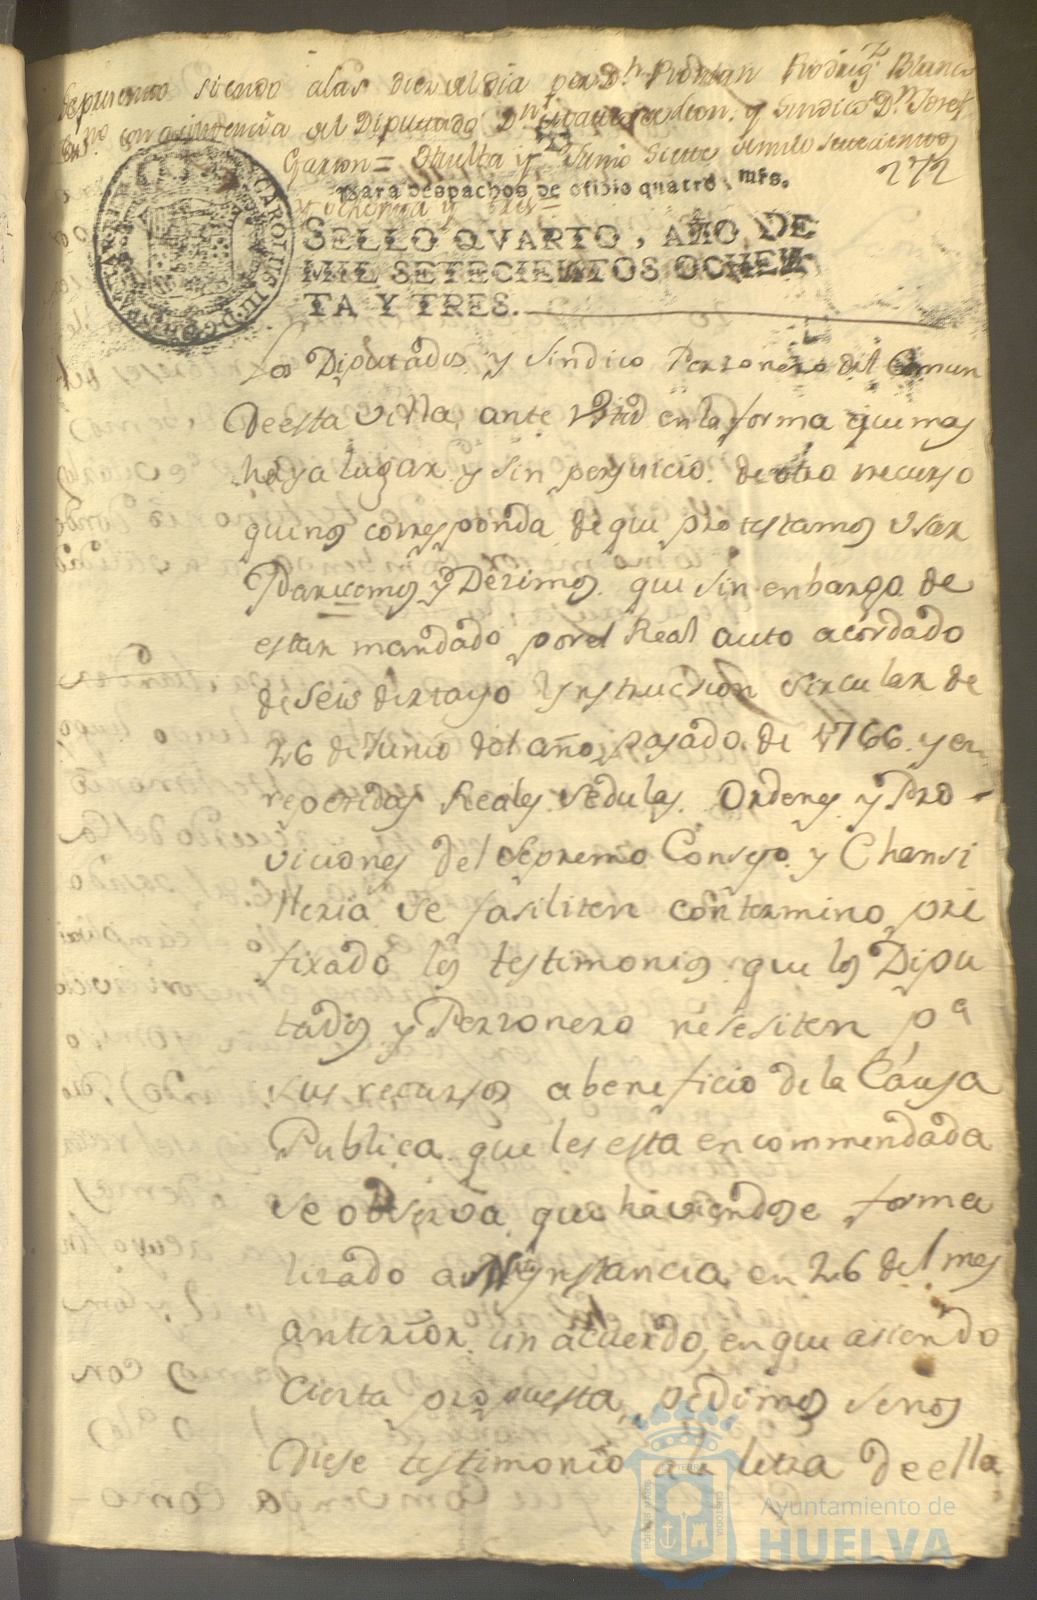 Se presento siendo alas diez del dia por Dn. Roman Rodrigz. Blanco
Essno. con asistencia del Diputado Dn. y sindico Dn. Josef
Garzon = Huelva y Junio siete de mil setecientos
y ochenta y tres =
272
Para despachos de oficio quatro mrs.
SELLO QVARTO, AÑO DE
MIL SETECIENTOS OCHEN
TA Y TRES.
CAROLUS III. D. G. HISPANIAR
Los Diputados y Sindico Perzonero del Comun
de esta Villa, ante Vstd en la forma que mas
haya lugar y sin perjuicio de otro recurso
que nos corresponda de que protestamos usar
Parecemos y Dezimos que sin enbargo de
estar mandado por el Real auto acordado
de Seis de Mayo Ynstruccion sircular de
26 de Junio del año pasado de 1766 y en
repetidas Reales Sedulas Ordenes y Pro-
viciones del Supremo Consejo y Chansi
lleria se fasiliten con termino pre
fixado los testimonios que los Dipu
tados y Perzonero nesesiten pa
sus recursos a beneficio de la Causa
Publica que les esta encommendada
se observa que haviendose forma
lizado a Ynstancia en 26 del mes
anterior un acuerdo, en que asiendo
Cierta propuesta pedimos se nos
Diese testimonio ala letra de ella
Ayuntamiento de
HUELVA